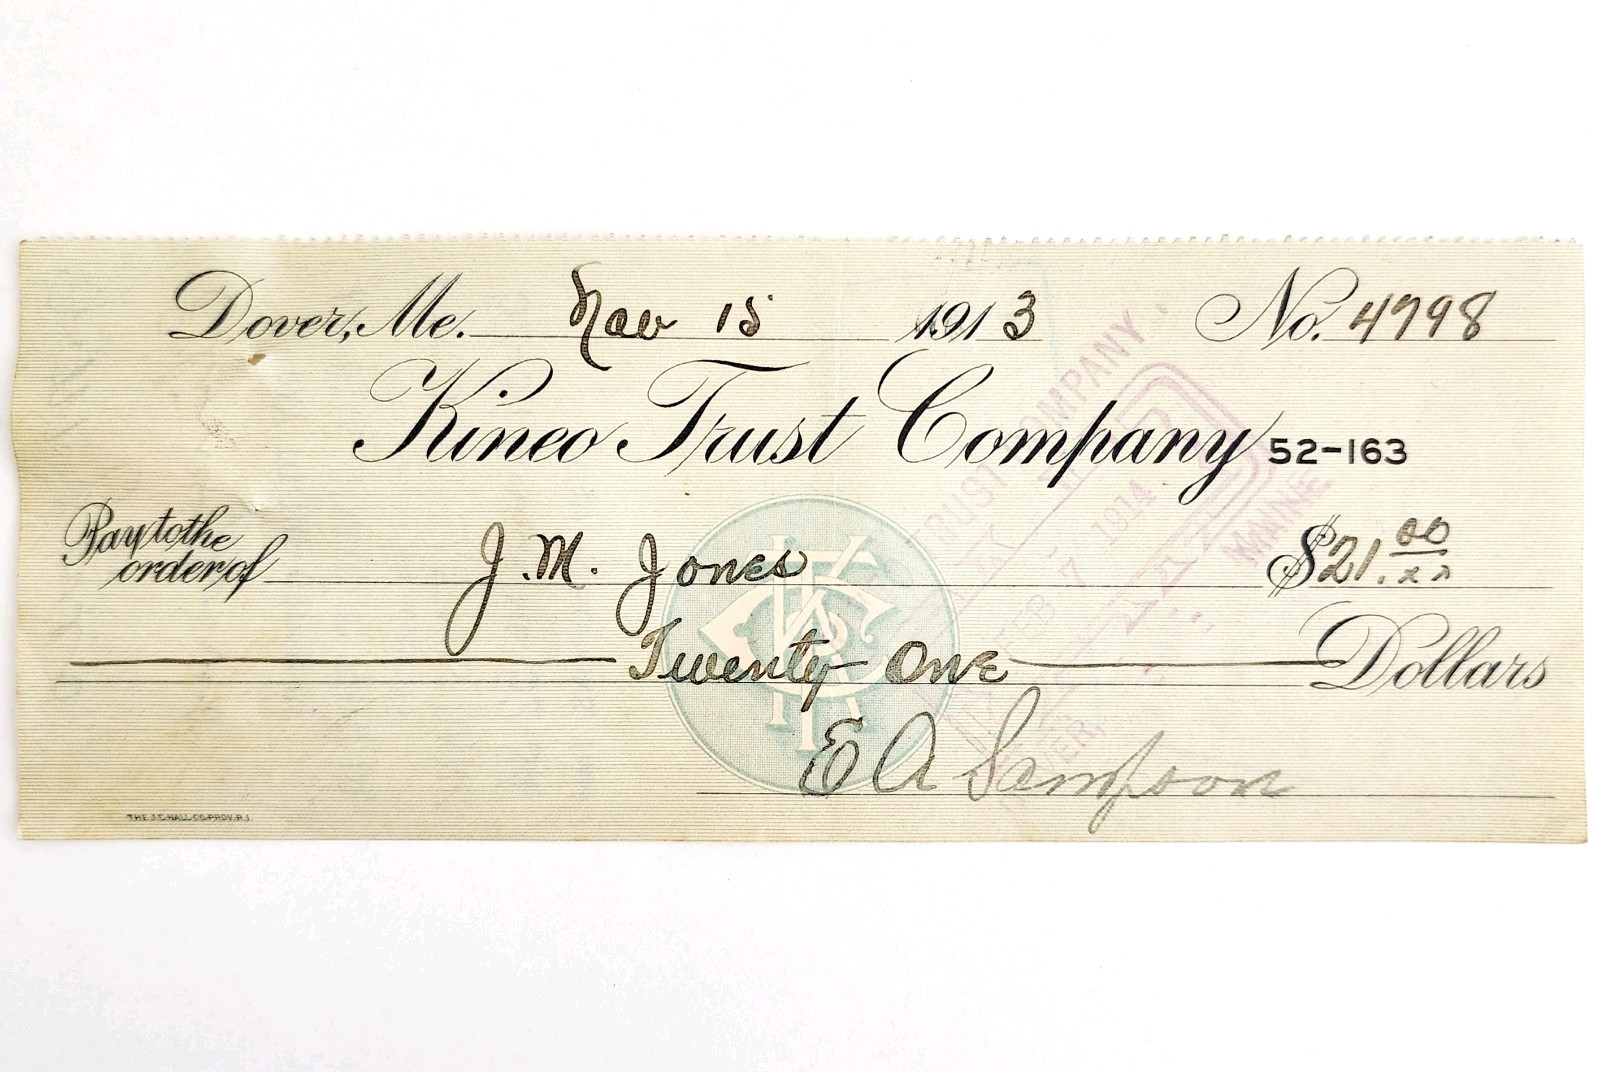 Dover, Me. Nov 15 1913 No. 4798
Kineo Trust Company 52-163
Pay to the
order of J. M. Jones $21.00
xx
Twenty One Dollars
E A Sampson
THE J.C. HALL CO. PROV. R.I.
TRUST COMPANY
PAID
FEB 7 1914
DOVER, MAINE
KTC